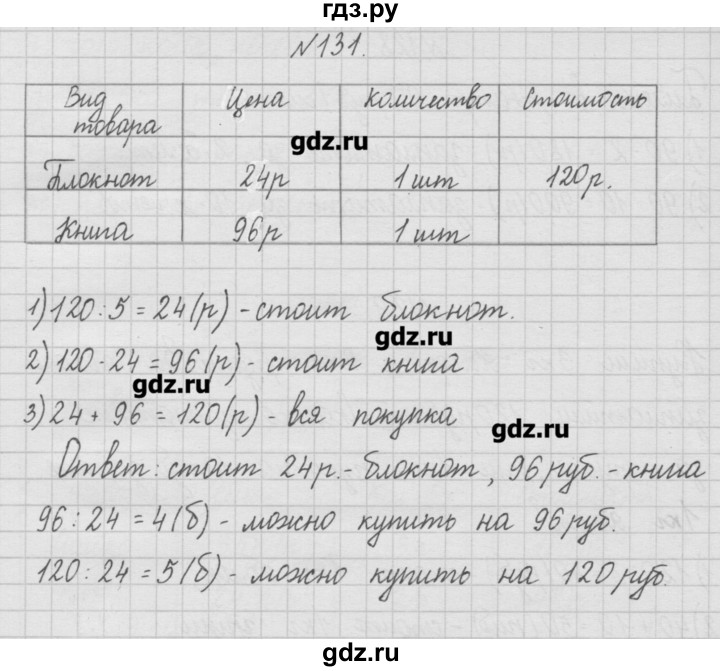 гдз.ру
№131.
Вид товара Цена Количество Стоимость
gdz.ru
Блокнот 24р 1 шт 120р.
Книга 96р 1 шт
1) 120 : 5 = 24 (р) - стоит блокнот.
gdz.ru
2) 120 - 24 = 96 (р) - стоит книга
gdz.ru
3) 24 + 96 = 120 (р) - вся покупка
gdz.ru
Ответ: стоит 24р. - блокнот, 96 руб. - книга
96 : 24 = 4 (б) - можно купить на 96 руб.
120 : 24 = 5 (б) - можно купить на 120 руб.